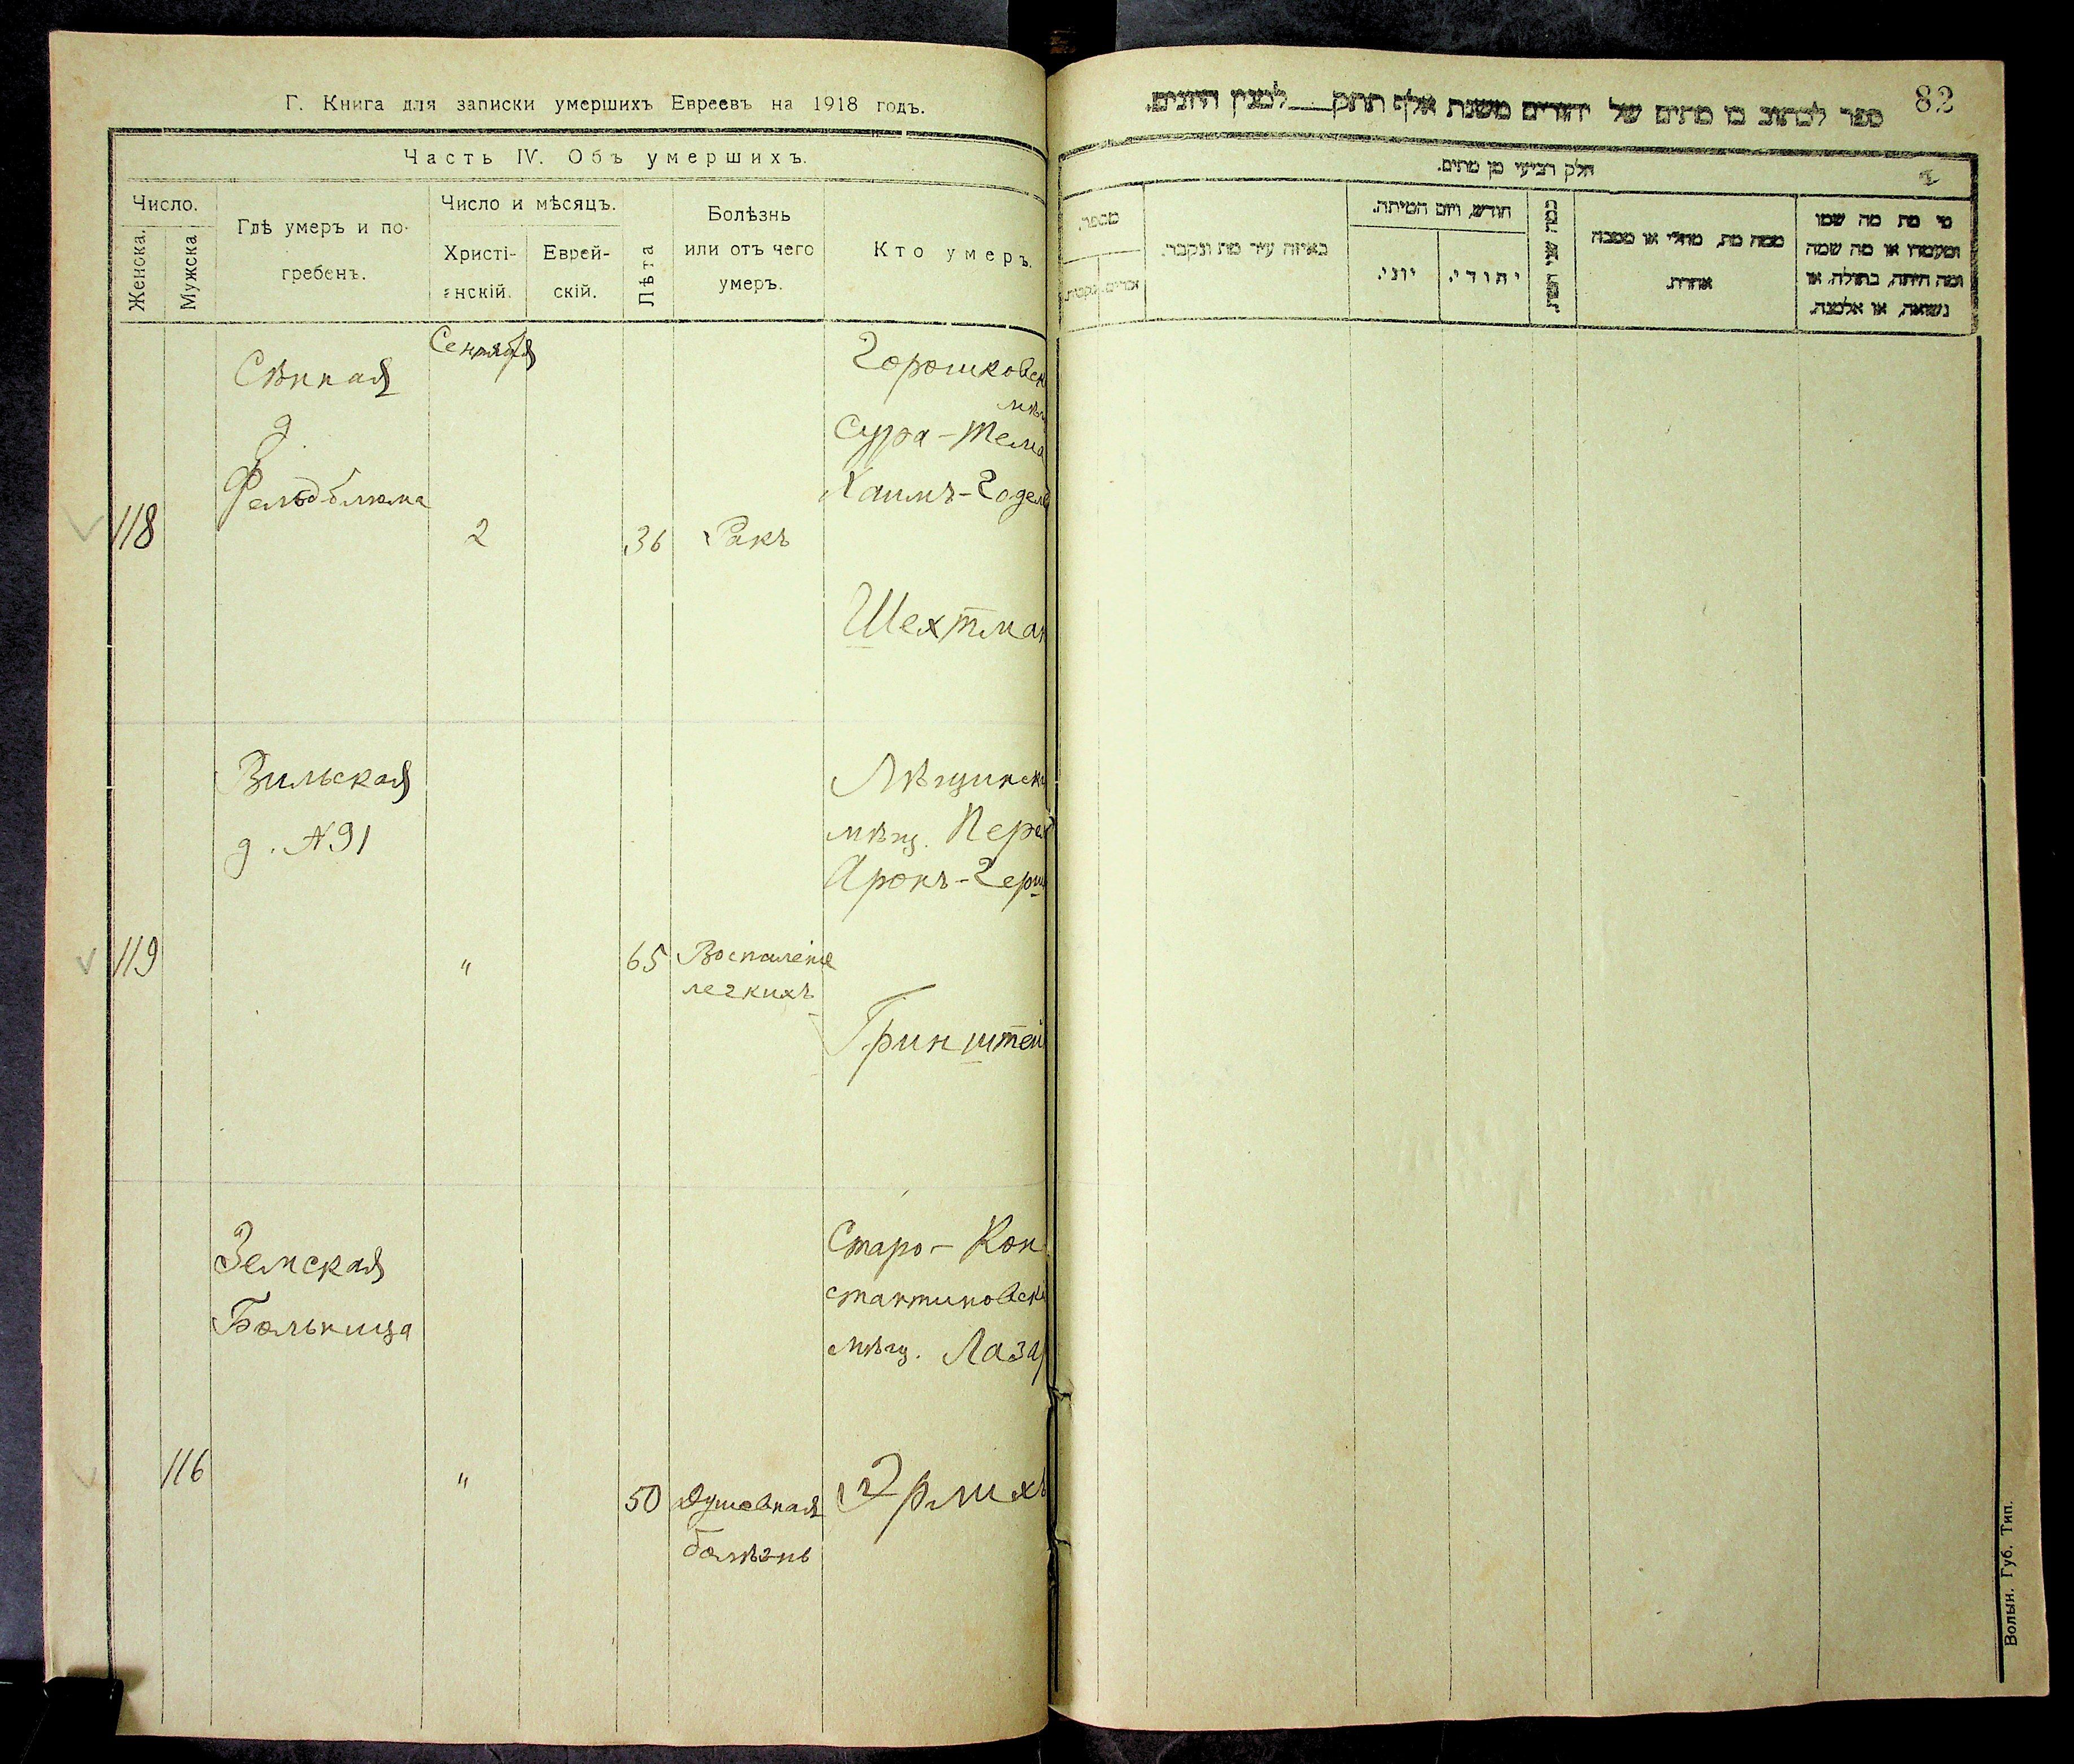 Г. Книга для записки умершихъ Евреевъ на 1918 годъ.
Часть IV. Объ умершихъ.
Число.
Женска.
Мужска
Гдѣ умеръ и по-
гребенъ.
Число и мѣсяцъ.
Христі-
анскій.
Еврей-
скій.
Лѣта
Болѣзнь
или отъ чего
умеръ.
Кто умеръ.
118
Сѣнная
д.
Фельдблюма
Сентября
2
36
Ракъ
Горошковск
мѣщ
Сура-Тема
Хаимъ-Годел
Шехтман
119
Вильская
д. №91
"
65
Воспаленіе
легкихъ
мѣщ. Перел
Аронъ-Герш
Гринштей
116
Земская
Больница
"
50
Душевная
болѣзнь
Старо-Кон
стантиновск
мѣщ. Лаза
Эрлихъ
82
ספר לכתוב בו מתים של יהודים משנת אלף תתק למנין היונים.
חלק רביעי מן מתים.
מספר.
זכרים.
נקבות.
באיזה עיר מת ונקבר.
חודש, ויום המיתה.
יוני.
יהודי.
כמה שני המת.
ממה מת, מחלי או מסבה
אחרת.
מי מת מה שמו
ומעמדו או מה שמה
ומה היתה, בתולה, או
נשואה, או אלמנה.
Волын. Губ. Тип.